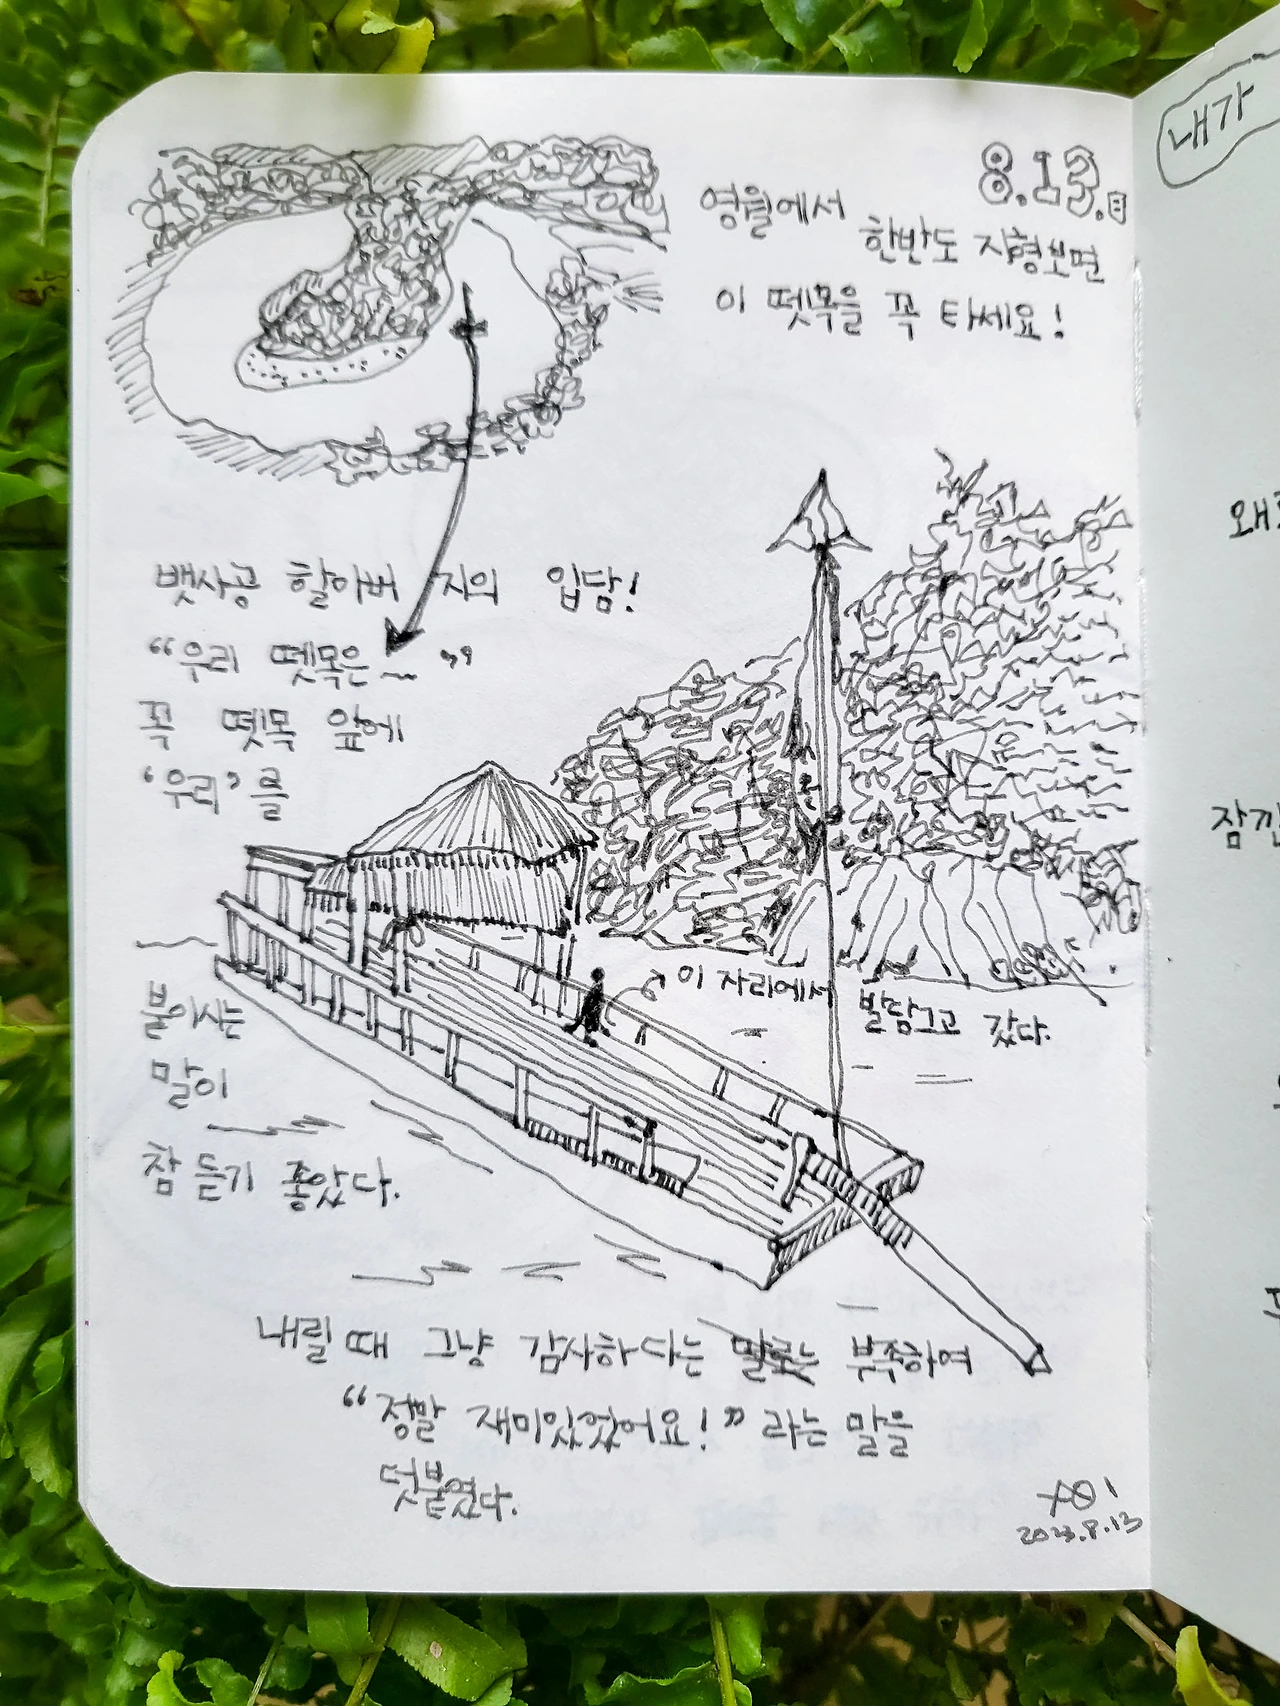 8.13.日
영월에서
한반도 지형보면
이 뗏목을 꼭 타세요!
뱃사공 할아버지의 입담!
“우리 뗏목은 ~”
꼭 뗏목 앞에
‘우리’를
붙이시는
말이
참 듣기 좋았다.
이 자리에서 발담그고 갔다.
내릴 때 그냥 감사하다는 부족하여
“정말 재미있었어요!” 라는 말을
덧붙였다.
2023.8.13
내가
잠깐